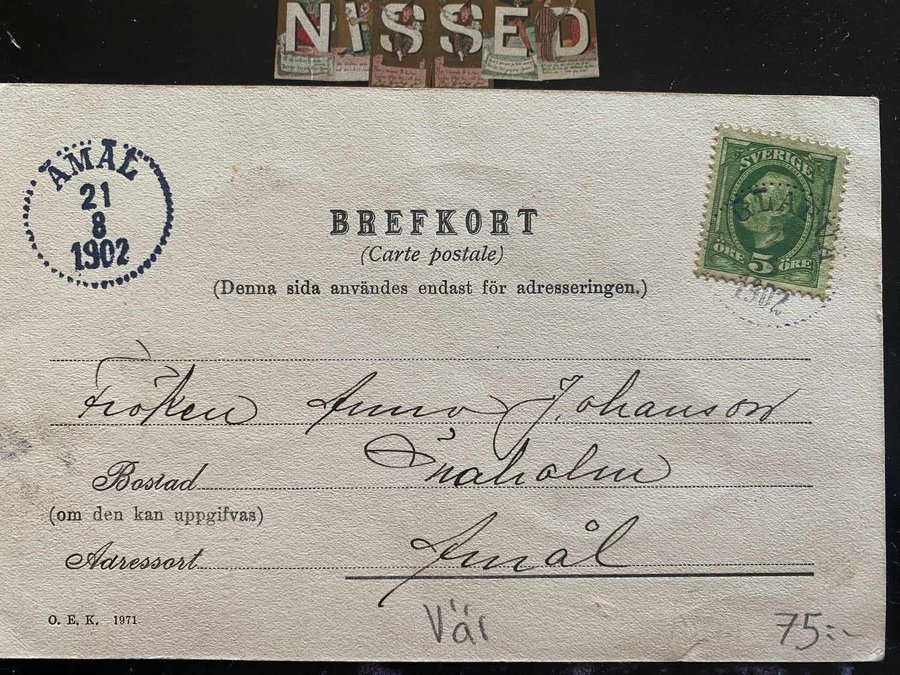 NISSED
ÅMÅL
21
8
1902
BREFKORT
(Carte postale)
(Denna sida användes endast för adresseringen.)
SVERIGE
ÖRE 5 ÖRE
1902
Fröken Anna Johanson
Bostad
(om den kan uppgifvas)
Adressort Åmål
O. E. K. 1971
Vär
75:-